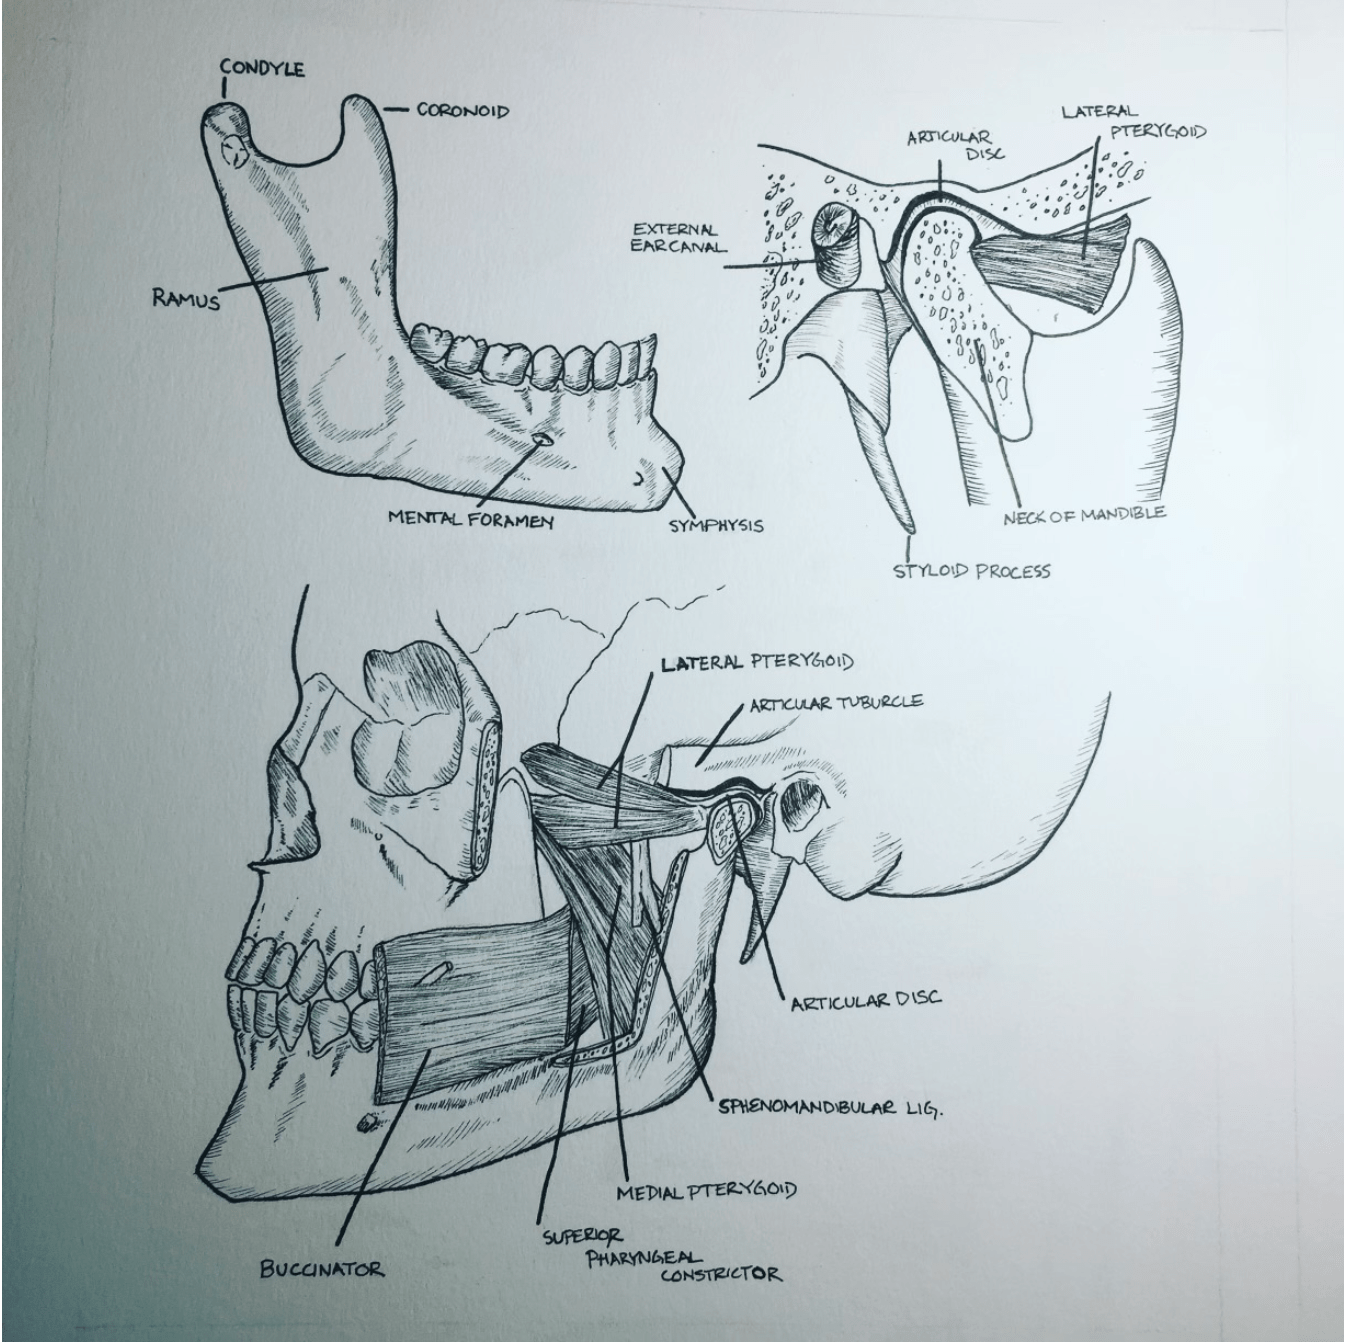 CONDYLE
CORONOID
RAMUS
MENTAL FORAMEN
SYMPHYSIS
LATERAL
PTERYGOID
ARTICULAR
DISC
EXTERNAL
EAR CANAL
NECK OF MANDIBLE
STYLOID PROCESS
LATERAL PTERYGOID
ARTICULAR TUBURCLE
ARTICULAR DISC
SPHENOMANDIBULAR LIG.
MEDIAL PTERYGOID
SUPERIOR
PHARYNGEAL
CONSTRICTOR
BUCCINATOR